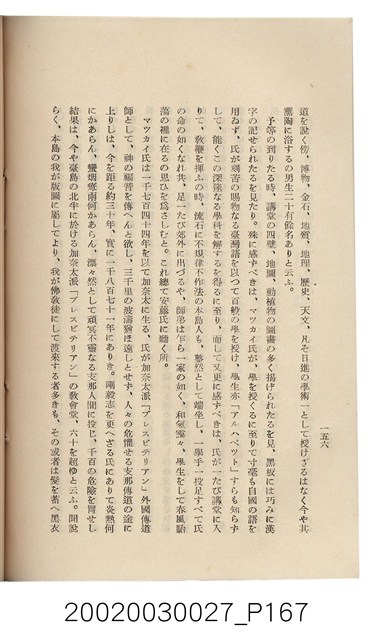 一五六
道を說く傍、博物、金石、地質、地理、歷史、天文、凡そ日進の學術一として授けざるはなく今や其
薰陶に浴するの男生二十有餘名ありと云ふ。
予等の到りたる時、講堂の四壁、地圖、動植物の圖書の多く揚げられたるを見、黑板には巧みに漢
字の記せられたるを見たり。殊に感ずべきは、マツカイ氏が、學を授くるに至りて寸毫も自國の語を
用ゐず、氏が刻苦の賜物なる臺灣語を以つて百般の學を授け、學生亦「アルハベツト」すらも知らず
して、能くこの深邃なる學科を解するを得るに至り、而して又更に感ずべきは、氏が一たび講堂に入
りて、敎鞭を揮ふの時、流石に不規律不作法の本島人も、肅然として端坐し、一擧手一投足すべて氏
の命の如くなれ共、足一たび郊外に出づるや、師弟は乍ら一家の如く、和氣靄々、學生をして春風駘
蕩の裡に在るの思ひを爲さしむと。これ總て安藤氏に聽く所。
マツカイ氏は一千七百四十四年を以て加奈太に生る、氏が加奈太派「プレスビテリアン」外國傳道
師として、神の福音を傳へんと欲し、三千里の波濤猶ほ遠しとせず、人々の危懼せる支那傳道の途に
上りしは、今を距る約三十年、實に一千八百七十一年にありき。剛毅志を更へざる氏にありて炎熱何
にかあらん、蠻烟瘴雨何かあらん、漂々然として頑冥不靈なる支那人間に投じ、千百の危險を冐せし
結果は、今や臺島の北半に於ける加奈太派「プレスビテリアン」の敎會堂、六十を超ゆと云ふ。聞說
らく、本島の我が版圖に屬してより、我が佛敎徒にして渡來する者多きも、その或者は髮を蓄へ黑衣
20020030027_P167